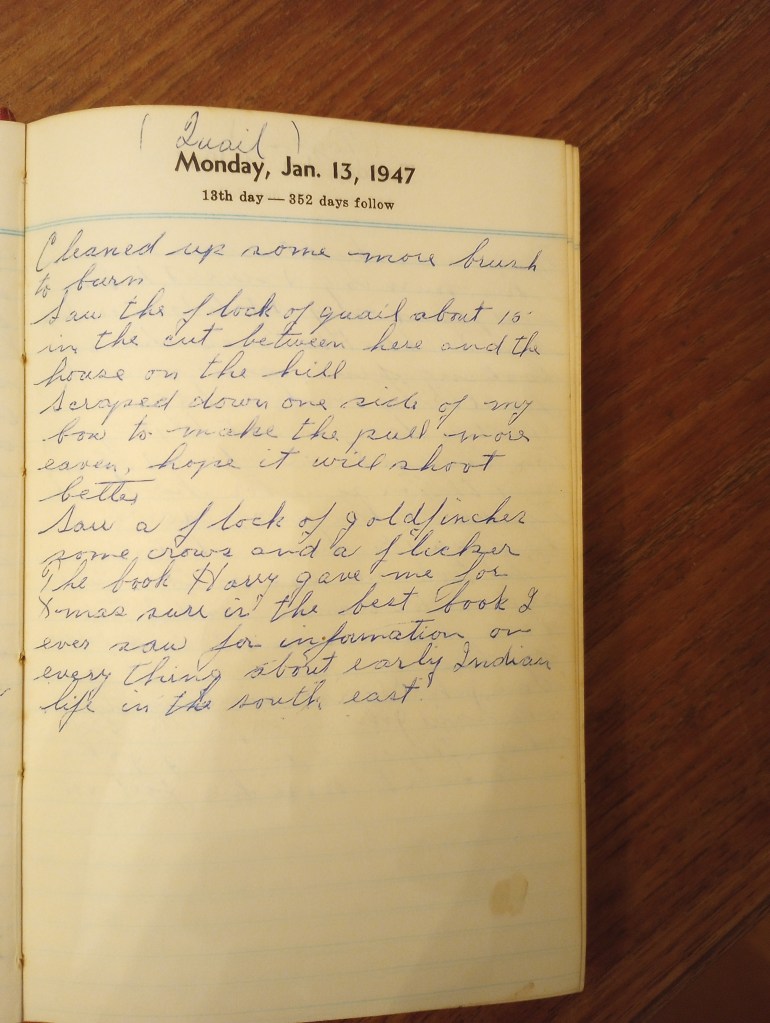 ( Quail )
Monday, Jan. 13, 1947
13th day — 352 days follow
Cleaned up some more brush
to burn
Saw the flock of quail about 15
in the cut between here and the
house on the hill
Scraped down one side of my
bow to make the pull more
eaven, hope it will shoot
better
Saw a flock of goldfinches
some crows and a flicker
The book Harry gave me for
X-mas sure is the best book I
ever saw for information on
every thing about early Indian
life in the south east.